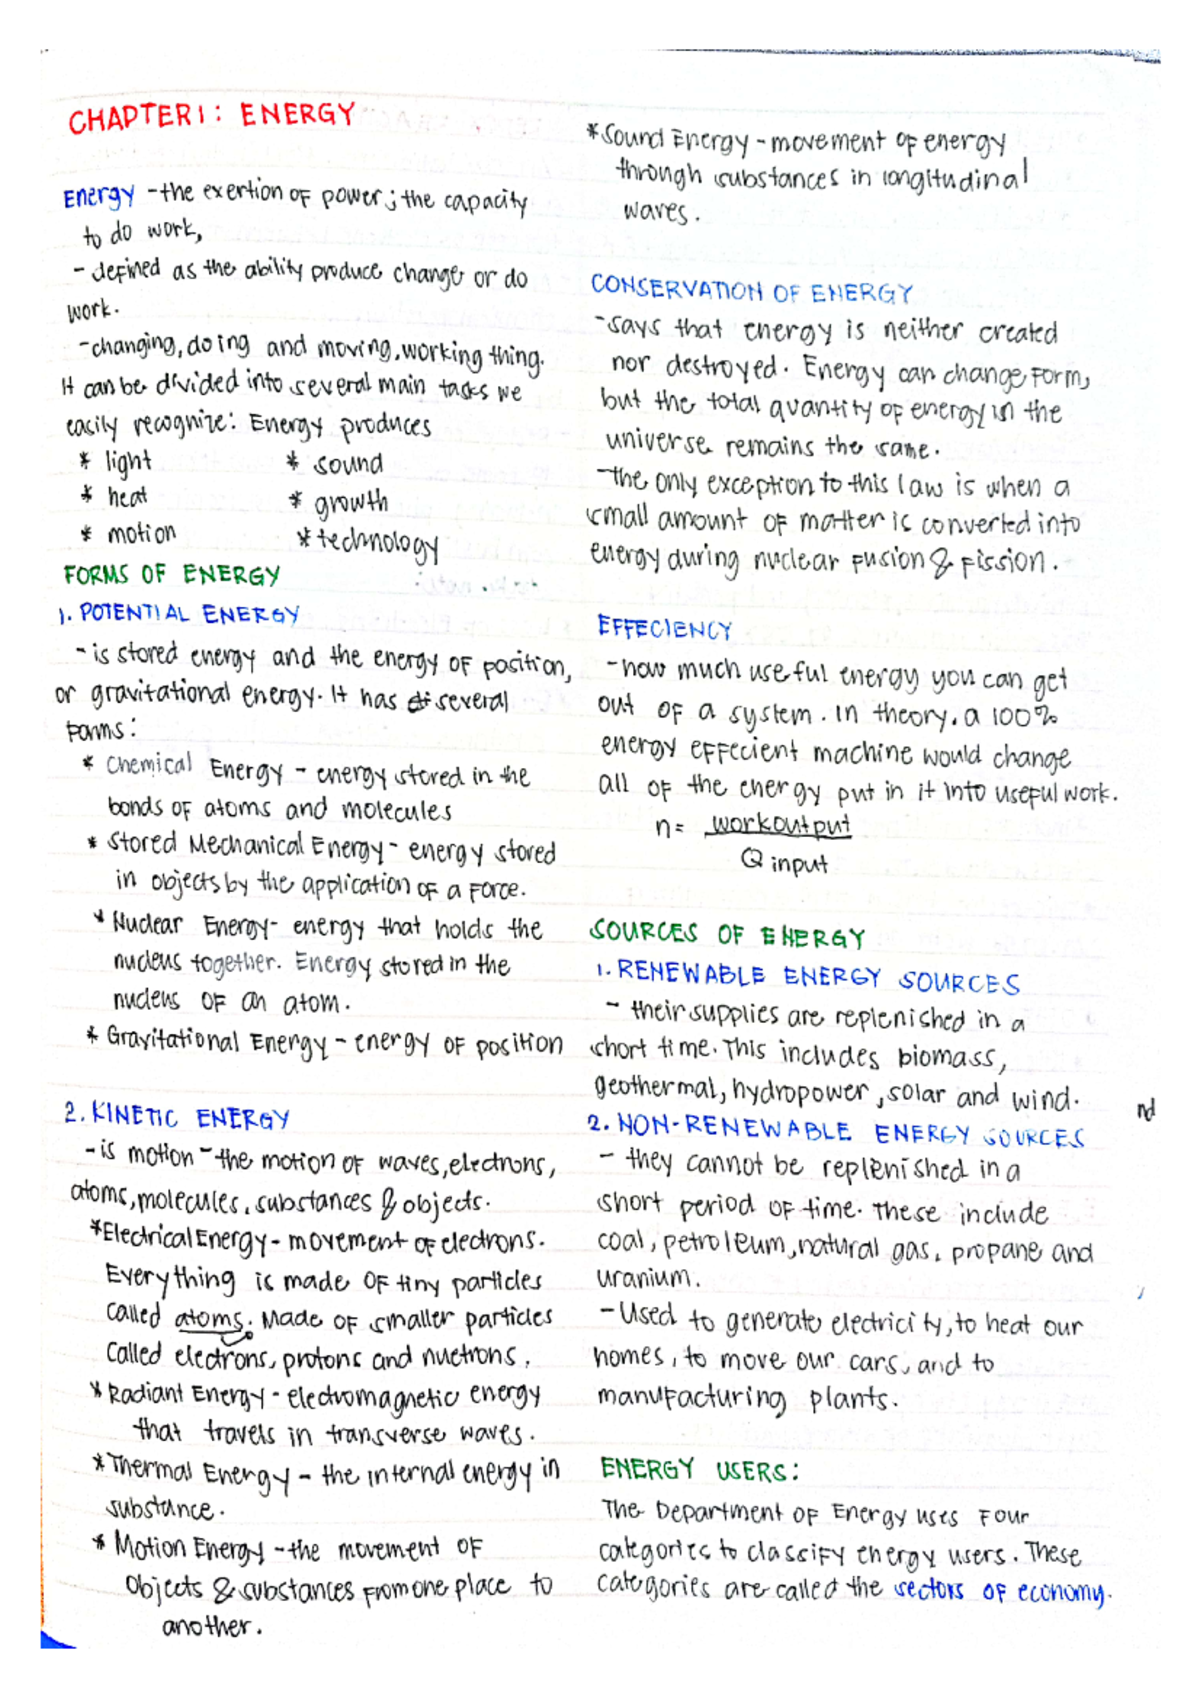 CHAPTER1: ENERGY
Energy - the exertion of power; the capacity
to do work,
- defined as the ability produce change or do
work.
- changing, doing and moving, working thing.
It can be divided into several main tasks we
easily recognize: Energy produces
* light * sound
* heat * growth
* motion * technology
FORMS OF ENERGY
1. POTENTIAL ENERGY
- is stored energy and the energy of position,
or gravitational energy. It has several
forms:
* Chemical Energy - energy stored in the
bonds of atoms and molecules
* Stored Mechanical Energy - energy stored
in objects by the application of a force.
* Nuclear Energy - energy that holds the
nucleus together. Energy stored in the
nucleus of an atom.
* Gravitational Energy - energy of position
2. KINETIC ENERGY
- is motion - the motion of waves, electrons,
atoms, molecules, substances & objects.
* Electrical Energy - movement of electrons.
Everything is made of tiny particles
called atoms. Made of smaller particles
called electrons, protons and nuetrons.
* Radiant Energy - electromagnetic energy
that travels in transverse waves.
* Thermal Energy - the internal energy in
substance.
* Motion Energy - the movement of
objects & substances from one place to
another.
* Sound Energy - movement of energy
through substances in longitudinal
waves.
CONSERVATION OF ENERGY
- says that energy is neither created
nor destroyed. Energy can change form,
but the total quantity of energy in the
universe remains the same.
- the only exception to this law is when a
small amount of matter is converted into
energy during nuclear fusion & fission.
EFFECIENCY
- how much useful energy you can get
out of a system. In theory, a 100%
energy effecient machine would change
all of the energy put in it into useful work.
n = work output
Q input
SOURCES OF ENERGY
1. RENEWABLE ENERGY SOURCES
- their supplies are replenished in a
short time. This includes biomass,
geothermal, hydropower, solar and wind.
nd
2. NON-RENEWABLE ENERGY SOURCES
- they cannot be replenished in a
short period of time. These include
coal, petroleum, natural gas, propane and
uranium.
- Used to generate electricity, to heat our
homes, to move our cars, and to
manufacturing plants.
ENERGY USERS:
The Department of Energy uses four
categories to classify energy users. These
categories are called the sectors of economy.